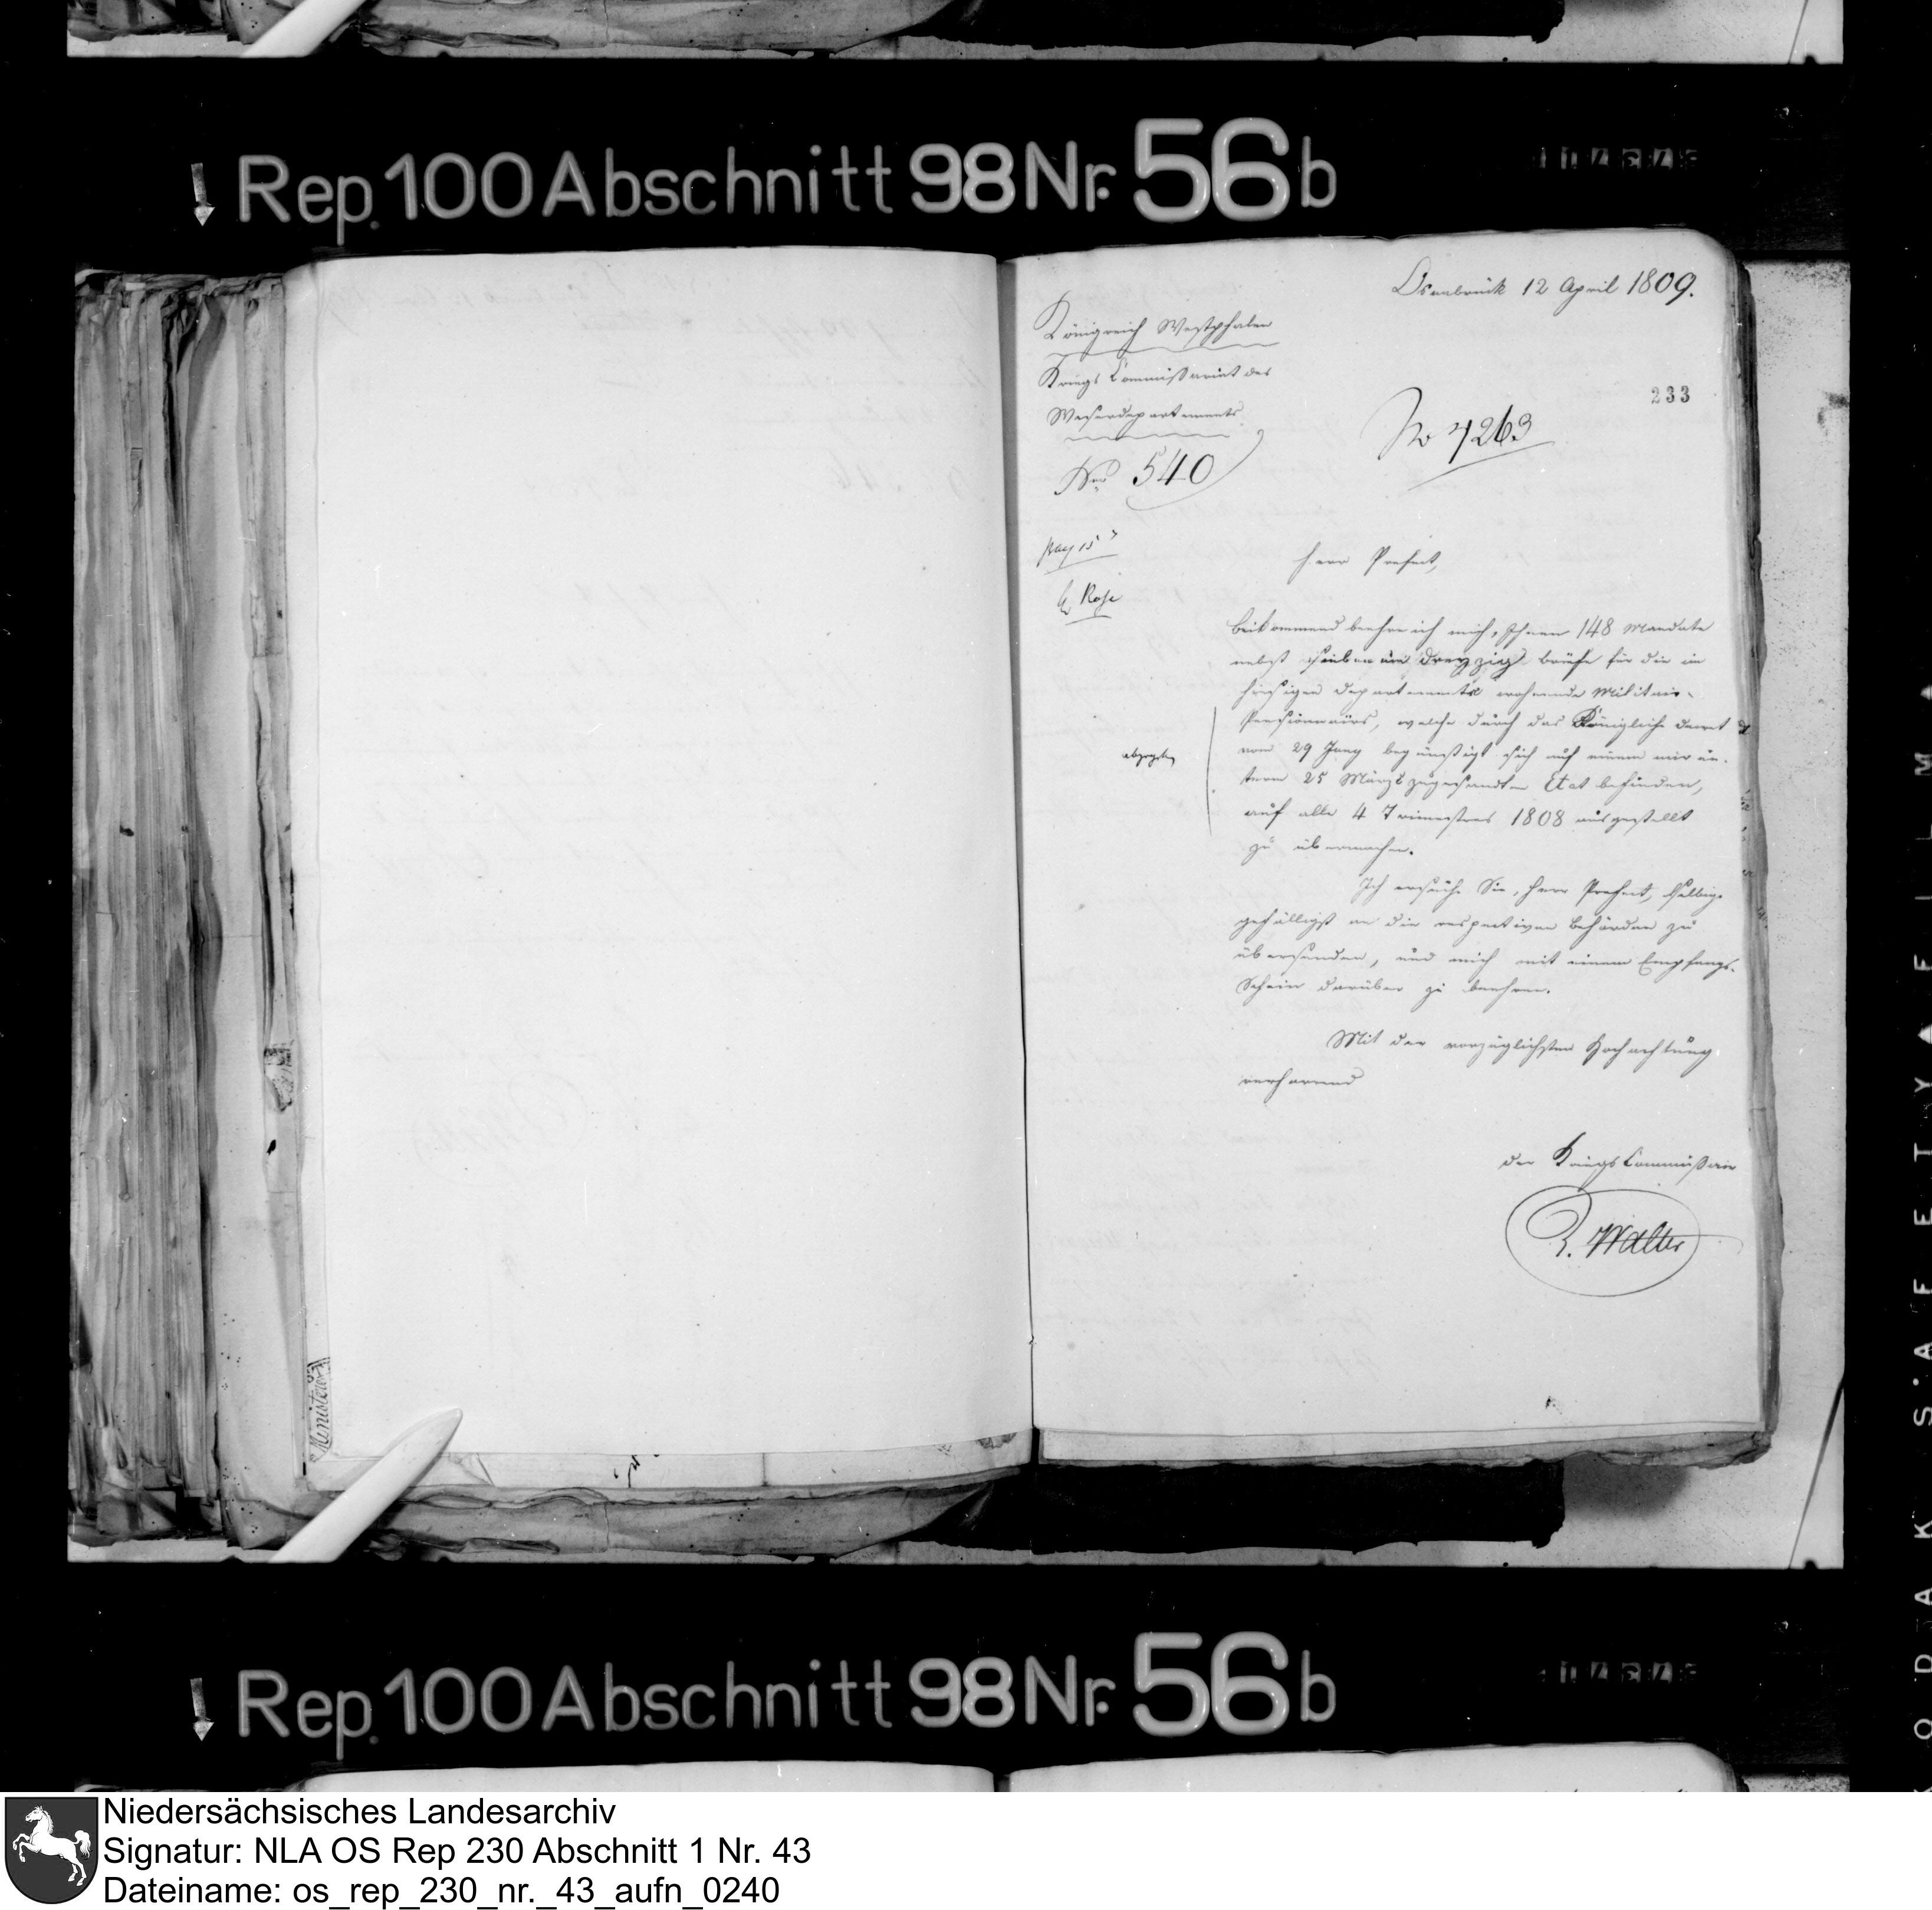 Rep. 100 Abschnitt 98 Nr. 56 b
Osnabrück 12 April 1809.
Königreich Westphalen
Kriegs Commissariat des
Weserdepartements.
233
No 4263
Nro 540
Rose
Herr Prefect,
Beikommend beehre ich mich, Ihnen 148 Mandate
nebst sieben und dreyzig Briefe für die im
hiesigen Departements wohnende Militair-
Pensionnairs, welche durch das Königliche Decret
vom 29 begünstigt sich auf einem mir un-
term 25 März zugesandten Etat befinden,
auf alle 4 Trimestres 1808 ausgestellt
zu übermachen.
abgegeben
Ich ersuche Sie, Herr Prefect, selbige
gefälligst an die respectiven Behörden zu
übersenden, und mich mit einem Empfangs-
Schein darüber zu beehren.
Mit der vorzüglichsten Hochachtung
verharrend
der Kriegs Commissair
Walter
Ministere
Rep. 100 Abschnitt 98 Nr. 56 b
KODAK SAFETY FILM
Niedersächsisches Landesarchiv
Signatur: NLA OS Rep 230 Abschnitt 1 Nr. 43
Dateiname: os_rep_230_nr._43_aufn_0240